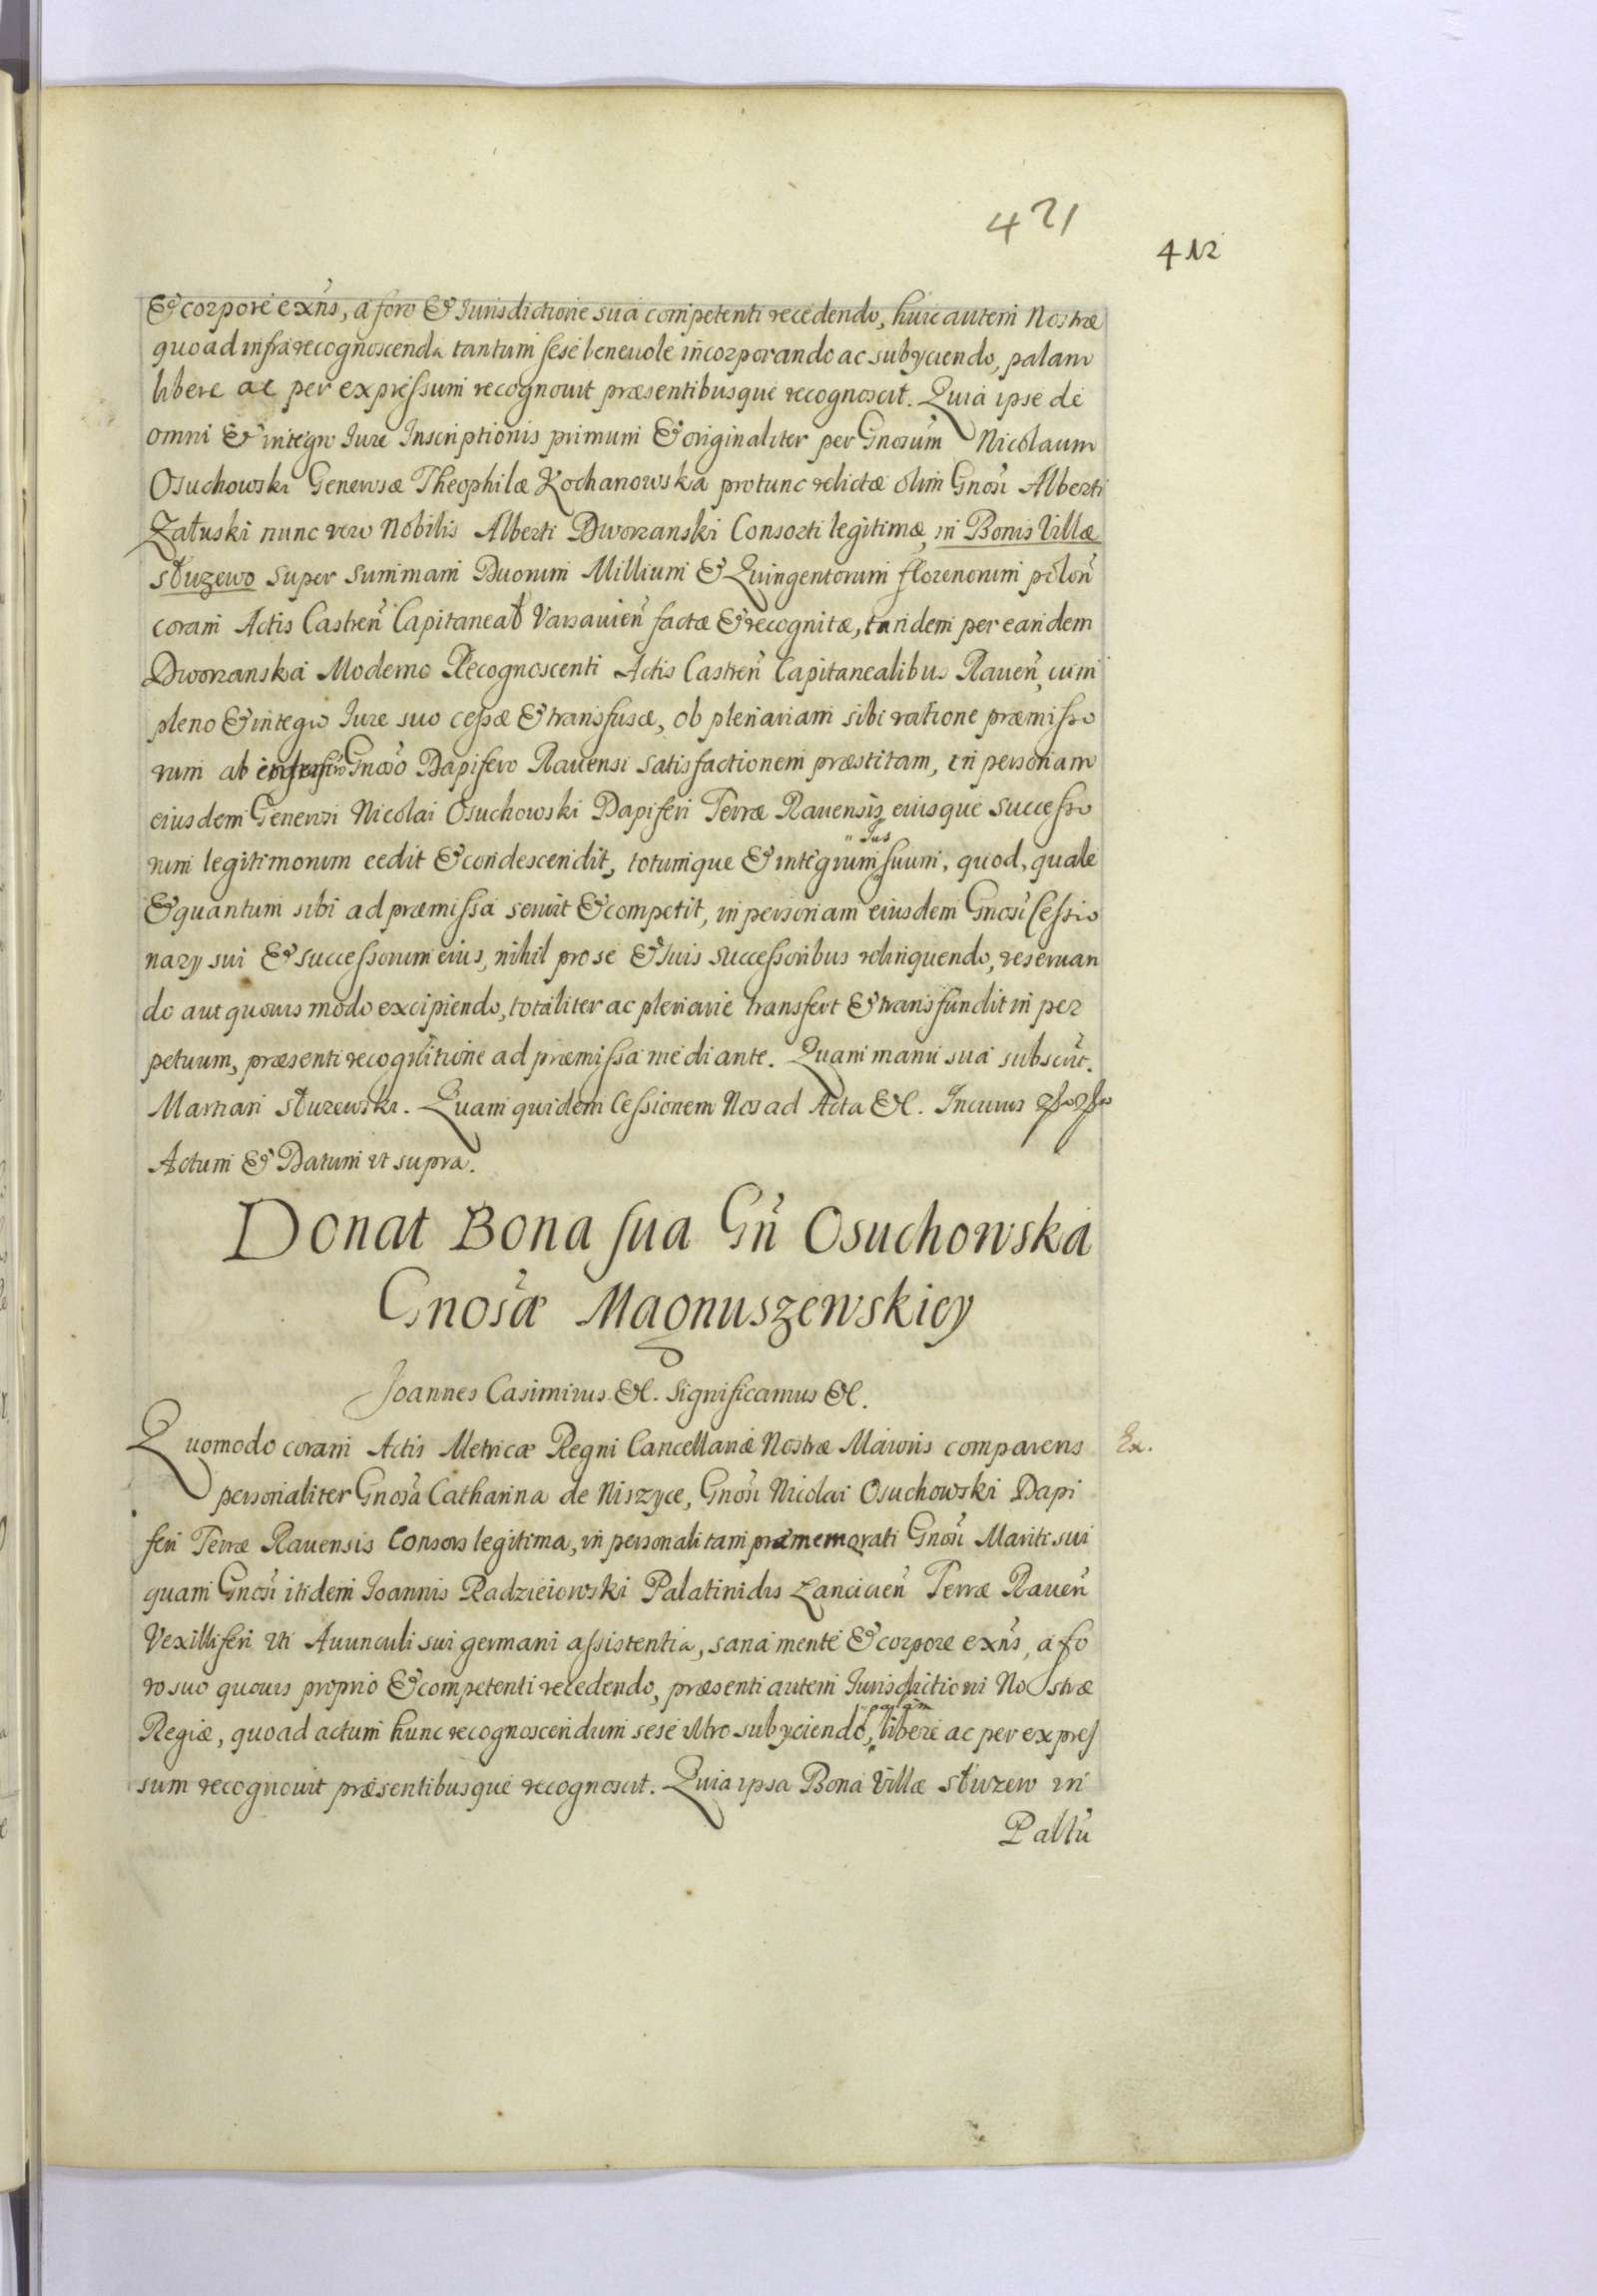 421
412
& corpore exñs, a foro & Iurisdictione sua competenti recedendo, huic autem Nostræ
quoad infra recognoscenda tantum sese beneuole incorporando ac subyciendo, palam
libere ac per expressum recognouit præsentibusque recognoscit. Quia ipse de
omni & integro Iure Inscriptionis primum & originaliter per Gnosum Nicolaum
Osuchowski Generosæ Theophilæ Kochanowska protunc relictæ olim Gnosi Alberti
Załuski nunc vero Nobilis Alberti Dworzanski Consorti legitimæ, in Bonis Villæ
słuzewo super summam Duorum Millium & Quingentorum florenorum polon̄
coram Actis Castren̄ Capitaneat Varsauien̄ factæ & recognitæ, tandem per eandem
Dworzanska Moderno Recognoscenti Actis Castren̄ Capitanealibus Rauen̄, cum
pleno & integro Iure suo cessæ & transfusæ, ob plenariam sibi ratione præmisso
rum ab Gnoso Dapifero Rauensi satisfactionem præstitam, in personam
eiusdem Generosi Nicolai Osuchowski Dapiferi Terræ Rauensis eiusque successo
rum legitimorum cedit & condescendit, totumque & integrum Jus suum, quod, quale
& quantum sibi ad præmissa seruit & competit, in personam eiusdem Gnosi Cessio
nary sui & successorum eius, nihil pro se & suis successoribus relinquendo, reseruan
do aut quouis modo excipiendo, totaliter ac plenarie transfert & transfundit in per
petuum, præsenti recognitione ad præmissa mediante. Quam manu sua subscrit.
Martian słuzewski. Quam quidem Cessionem Nos ad Acta &c. In cuius
Actum & Datum vt supra.
Donat Bona sua Gn̄ Osuchowska
Gnosæ Magnuszewskiey
Joannes Casimirus &c. Significamus &c.
Quomodo coram Actis Metricæ Regni Cancellariæ Nostræ Maioris comparens
Ex.
personaliter Gnosa Catharina de Niszyce, Gnosi Nicolai Osuchowski Dapi
feri Terræ Rauensis Consors legitima, in personali tam præmemorati Gnosi Mariti sui
quam Gnosi itidem Joannis Radzieiowski Palatinidis Lancicien̄ Terræ Rauen̄
Vexilliferi vti Auunculi sui germani assistentia, sana mente & corpore exñs, a fo
ro suo quouis proprio & competenti recedendo, præsenti autem Iurisdictioni Nostræ
Regiæ, quoad actum hunc recognoscendum sese vltro subyciendo, palam libere ac per expres
sum recognouit præsentibusque recognoscit. Quia ipsa Bona Villæ słuzew in
Paltū